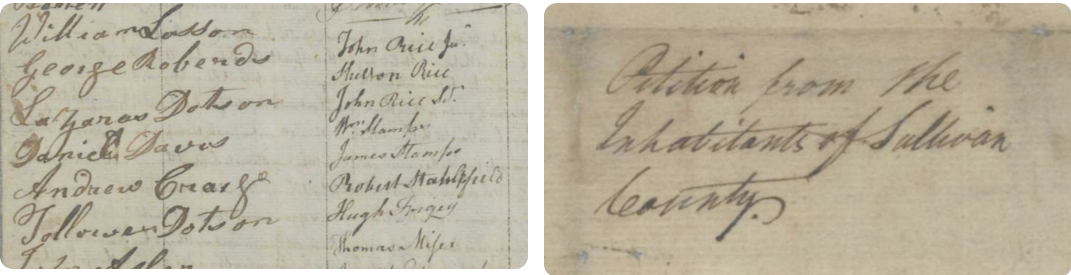 William Lasson
George Roberds
Lazaras Dotson
Daniel Davis
Andrew Craige
Tollower Dotson
the
John Rice Jur.
John Rice Sr.
Wm. Stamps
James Stamps
Robert Stablefield
Hugh Frogey
Thomas Miser
Petition from the
Inhabitants of Sullivan
County